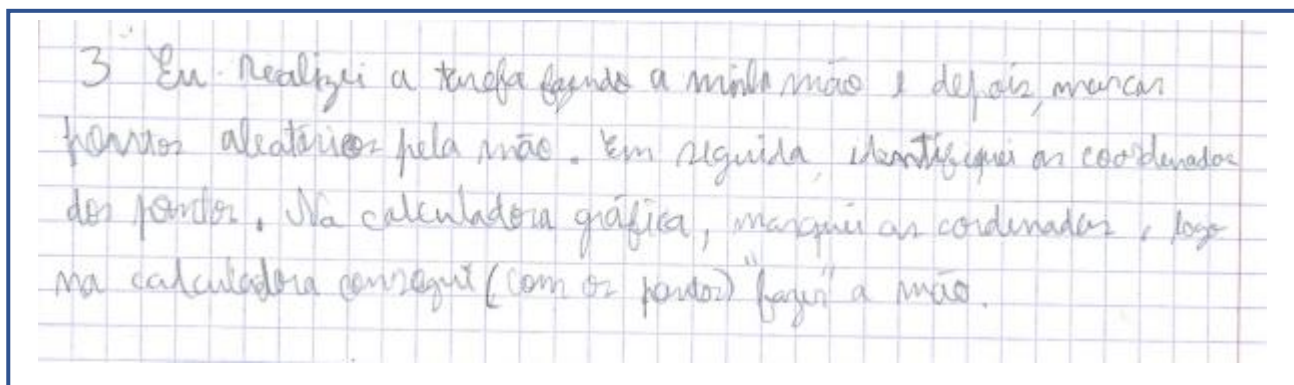 3 Eu realizei a tarefa fazendo a minha mão e depois, marcar
pontos aleatórios pela mão. Em seguida, identifiquei as coordenadas
dos pontos. Na calculadora gráfica, marquei as cordenadas, logo
na calculadora consegui (com os pontos) "fazer" a mão.